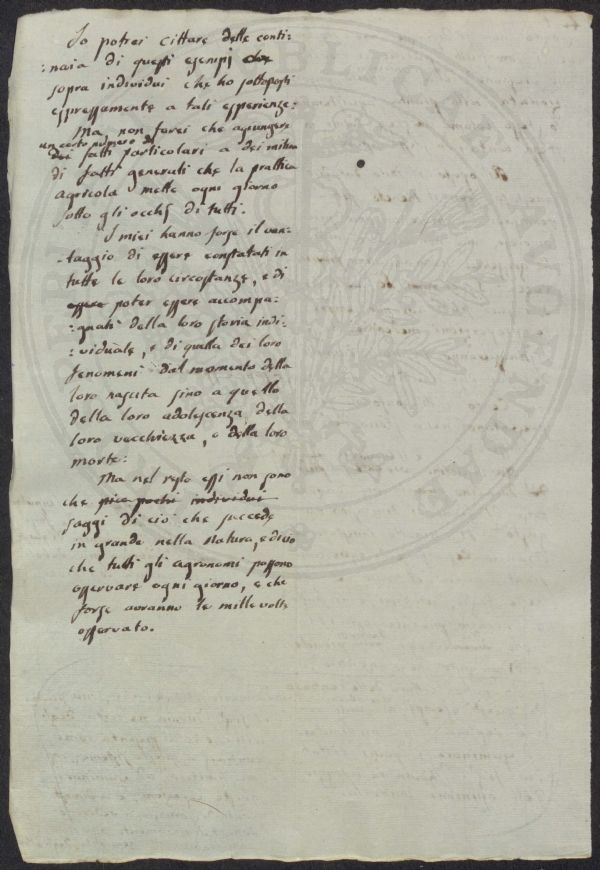 Io potrei cittare delle centi:
:naia di questi esempj che
sopra individui che ho sottoposti
espressamente a tali esperienze:
Ma non farei che agiungere
un certo numero di
dei fatti particolari a dei milioni
di fatti generali che la prattica
agricola mette ogni giorno
sotto gli occhj di tutti.
I miei hanno forse il van-
-taggio di essere constatati in
tutte le loro circostanze, e di
essere poter essere accompa:
:gnati della loro storia indi:
:viduale, e di quella dei loro
fenomeni dal momento della
loro nascita sino a quello
della loro adolescenza della
loro vecchiezza, e della loro
morte:
Ma nel resto essi non sono
che individui
saggi di ciò che succede
in grande nella Natura, e di ciò
che tutti gli agronomi possono
osservare ogni giorno, e che
forse avranno le mille volte
osservato.